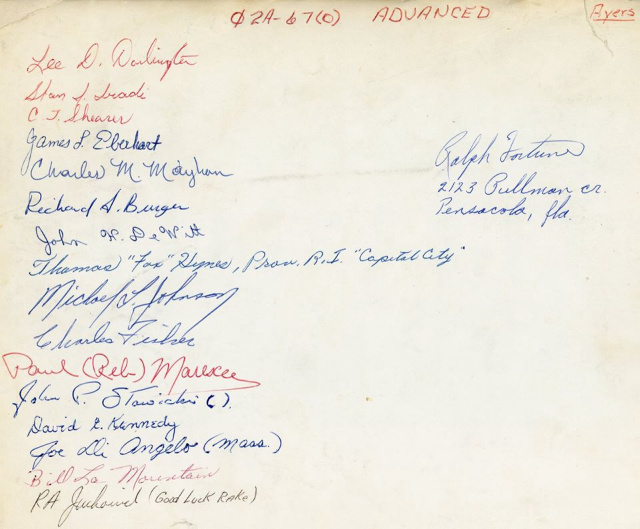 Ø2A-67(O) ADVANCED Ayers
Lee D. Darlington
Stan J.
C J Shearer
James L Eberhart
Charles M. Mayhan
Richard A. Burger
John W. DeWitt
Thomas "Fox" Hynes, Prov. R.I. "Capital City"
Michael L. Johnson
Charles Fisher
Paul (Reb)
John P.
David E. Kennedy
Joe Di Angelo (Mass.)
Bill La Mountain
RA (Good Luck Rake)
Ralph Fortune
2123 Pullman cr.
Pensacola, fla.